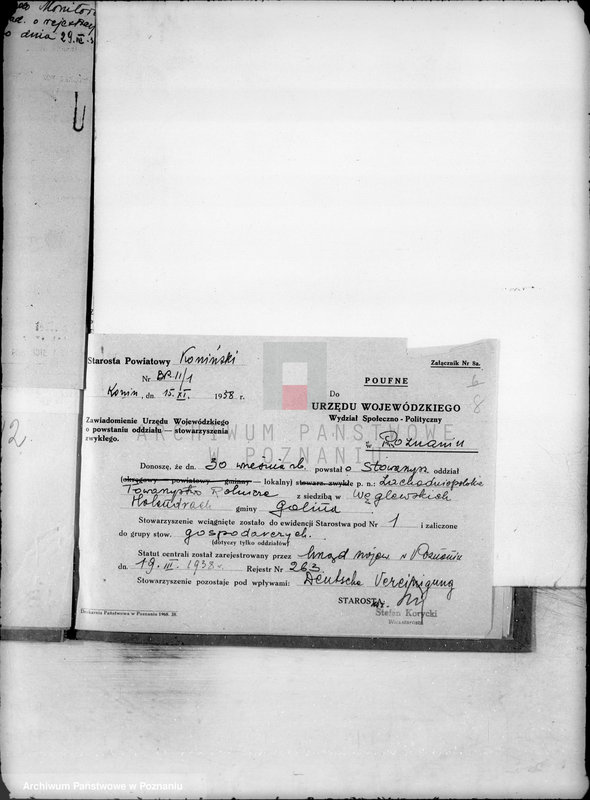 Monitor
o rejestrze
o dnia 29.III.
12
Starosta Powiatowy Koniński
Nr BP.II/1
Konin, dn. 15. XI. 1938 r.
Załącznik Nr 8a.
POUFNE
6
8
Do
URZĘDU WOJEWÓDZKIEGO
Wydział Społeczno-Polityczny
w Poznaniu
Zawiadomienie Urzędu Wojewódzkiego
o powstaniu oddziału — stowarzyszenia
zwykłego.
ARCHIWUM PAŃSTWOWE
W POZNANIU
Donoszę, że dn. 30 września rb. powstał o Stowarzysz. oddział
(okręgowy — powiatowy — gminny — lokalny) stowarz. zwykłe p. n.: Zachodniopolskie
Towarzystwo Rolnicze z siedzibą w Węglewskich
Holendrach gminy Golina
Stowarzyszenie wciągnięte zostało do ewidencji Starostwa pod Nr 1 i zaliczone
do grupy stow. gospodarczych.
(dotyczy tylko oddziałów)
Statut centrali został zarejestrowany przez Urząd Wojew. w Poznaniu
dn. 19. III. 1938 r. Rejestr Nr 263
Stowarzyszenie pozostaje pod wpływami: Deutsche Vereinigung
STAROSTA
Stefan Korycki
Wicestarosta
Drukarnia Państwowa w Poznaniu 1960. 38.
Archiwum Państwowe w Poznaniu